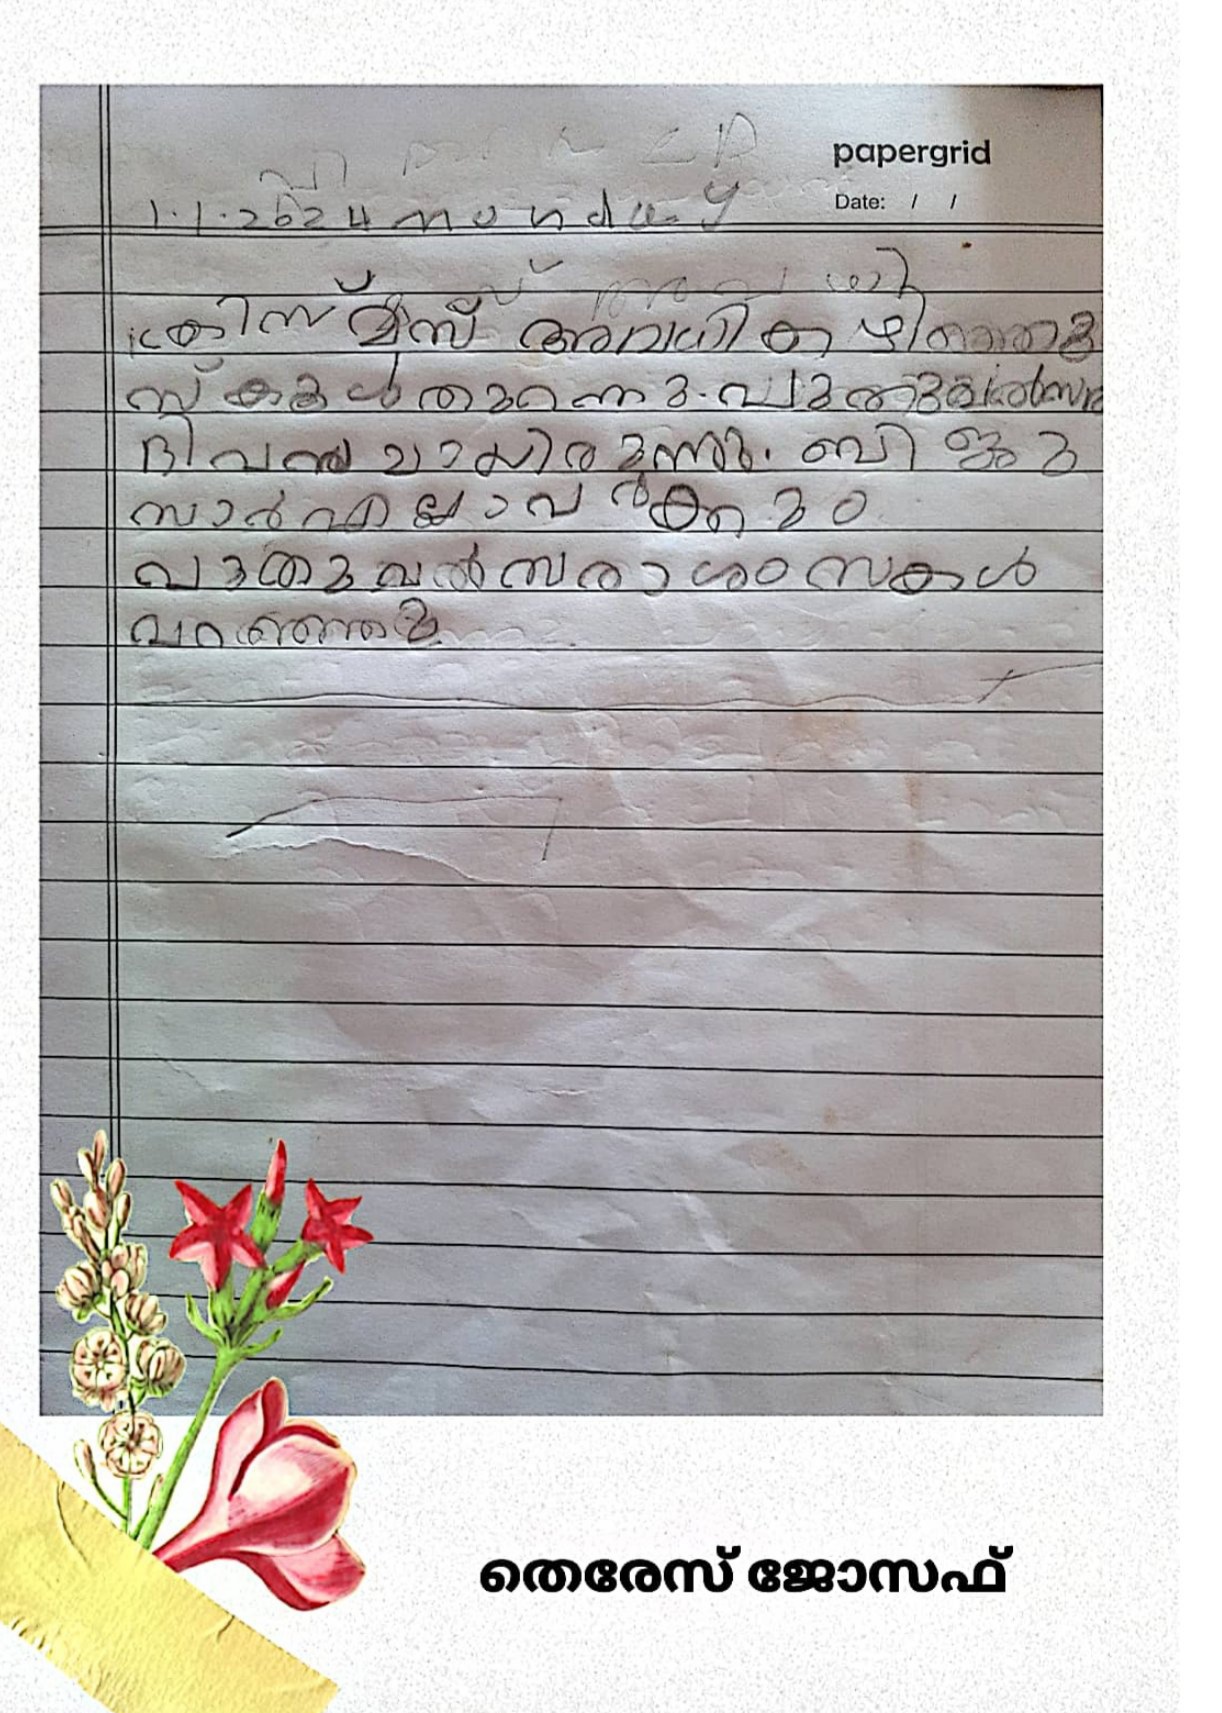 papergrid
Date: / /
1.1.2024 monday
ക്രിസ്മസ് അവധി കഴിഞ്ഞു
സ്കൂൾ തുറന്നു. പുതുവൽസര
ദിവസമായിരുന്നു. ബിജു
സാർ എല്ലാവർക്കും
പുതുവൽസരാശംസകൾ
പറഞ്ഞു
തെരേസ് ജോസഫ്